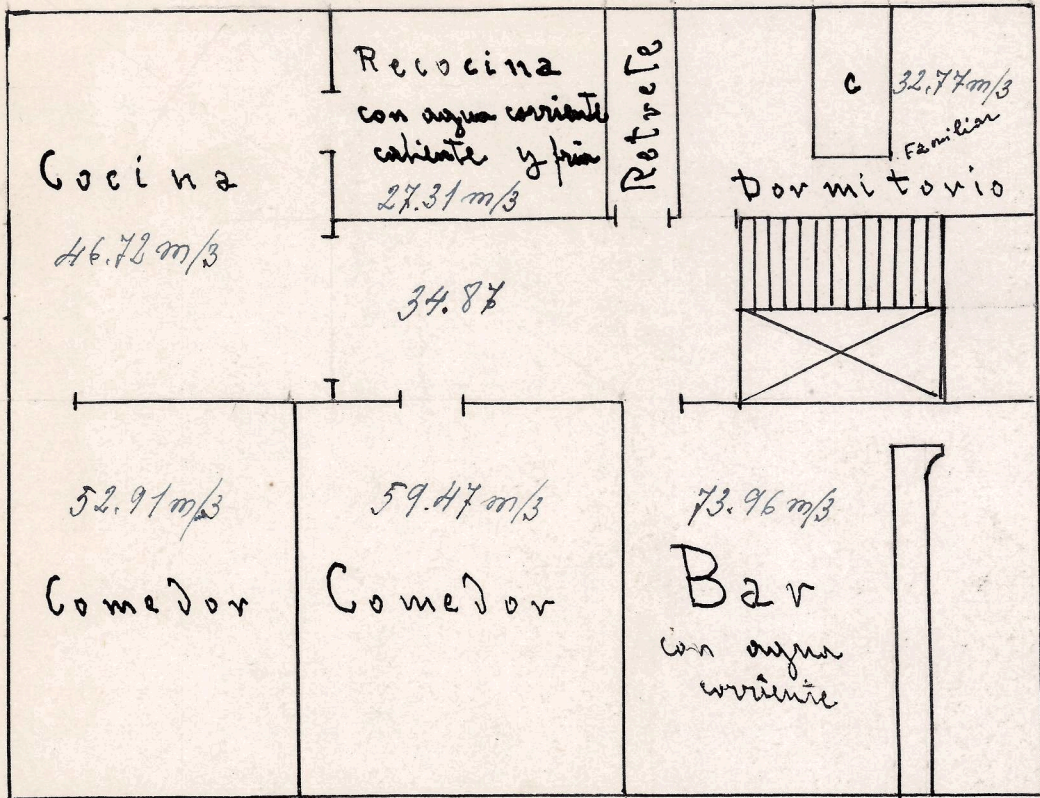 Recocina
con agua corriente
caliente y fria
27.31 m/3
Retrete
c
32.77 m/3
Familiar
Dormitorio
Cocina
46.72 m/3
34.87
52.91 m/3
Comedor
59.47 m/3
Comedor
73.96 m/3
Bar
con agua
corriente